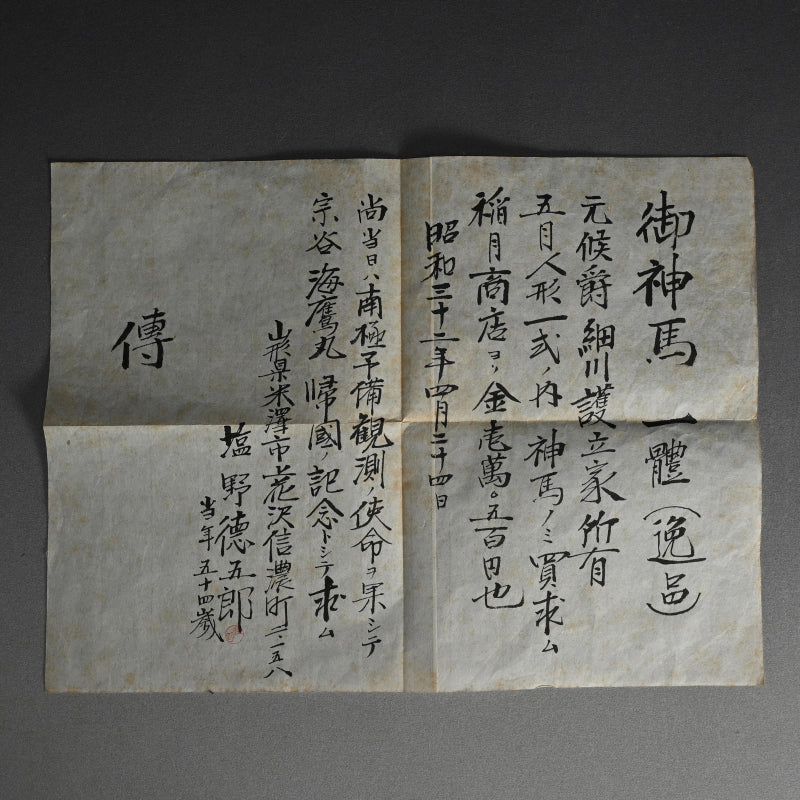 御神馬 一體（逸品）
元候爵 細川護立家所有
五月人形一式ノ内 神馬ノミ買求ム
稲月商店ヨリ 金壱萬。五百円也
昭和三十二年四月二十四日
尚当日ハ南極予備観測ノ使命ヲ果シテ
宗谷 海鷹丸 帰國ノ記念トシテ求ム
山形県米澤市花沢信濃町二、一五八
塩野德五郎
当年五十四歳
傳